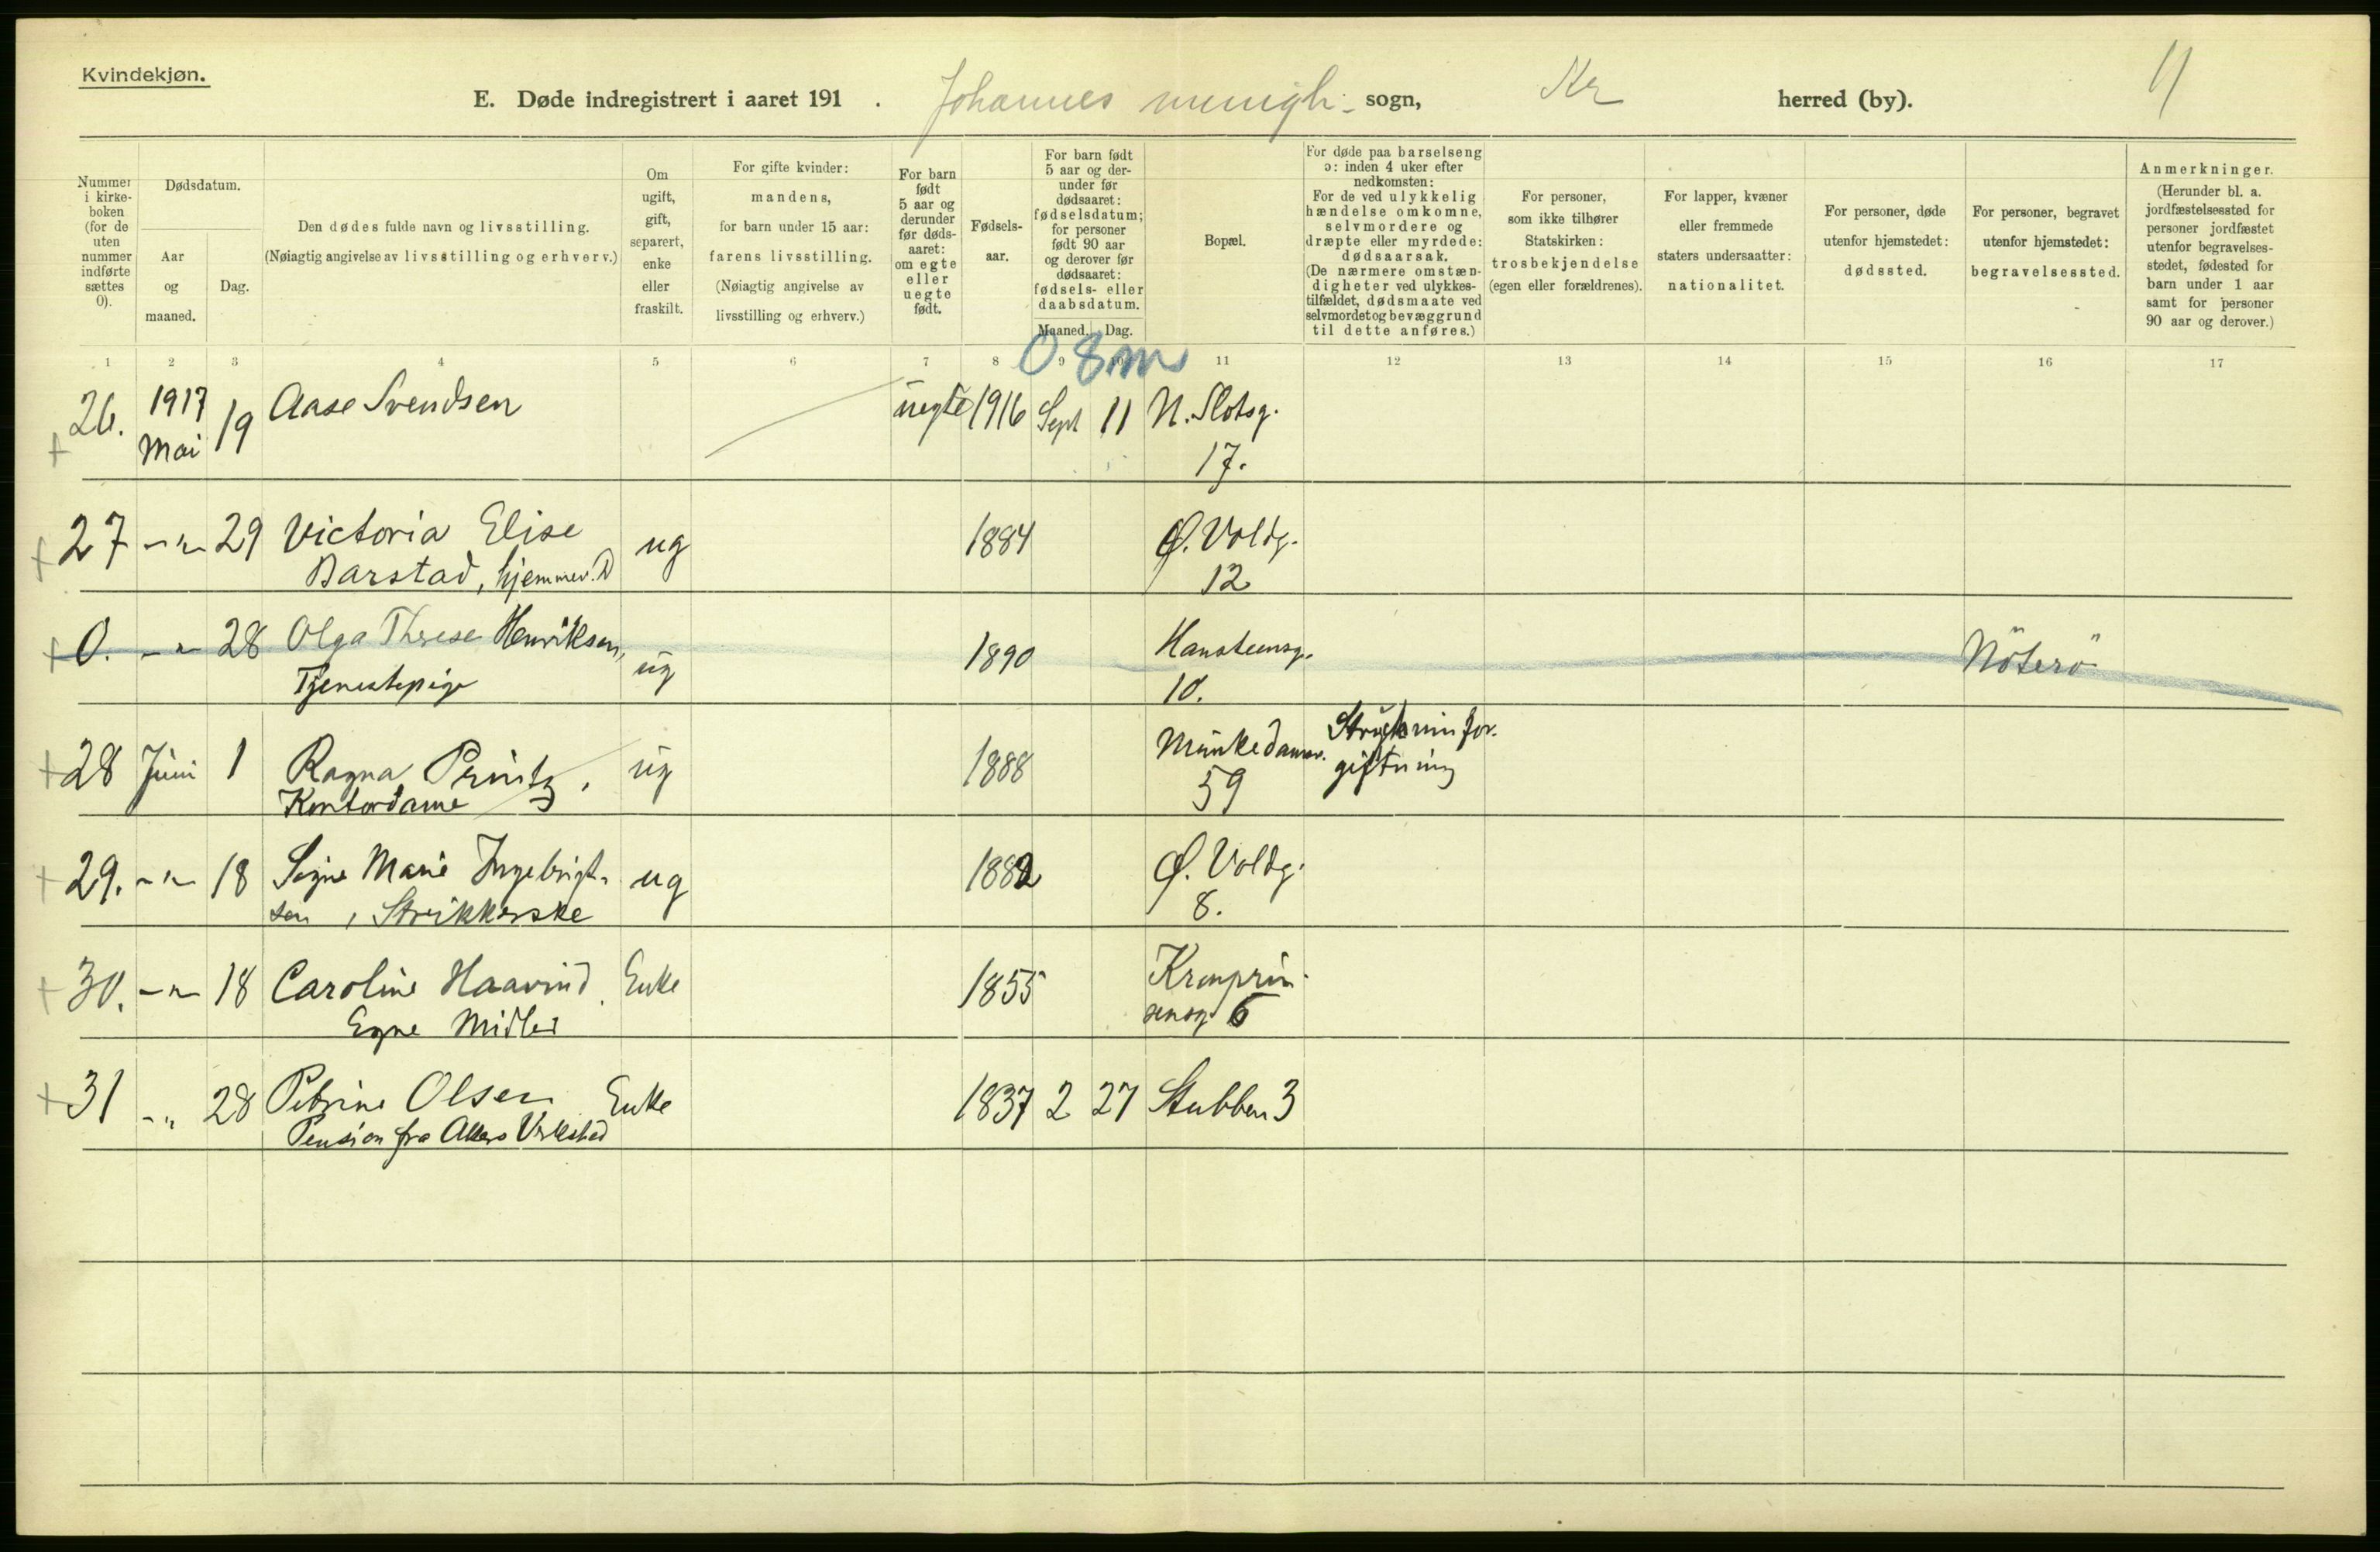 Kvindekjøn.
11
E. Døde indregistrert i aaret 191 . Johannes menigh. sogn, Kr herred (by).
Nummer i kirkeboken (for de uten nummer indførte sættes 0).
Dødsdatum.
Aar og maaned.
Dag.
Den dødes fulde navn og livsstilling.
(Nøiagtig angivelse av livsstilling og erhverv.)
Om ugift, gift, separert, enke eller fraskilt.
For gifte kvinder:
mandens,
for barn under 15 aar:
farens livsstilling.
(Nøiagtig angivelse av
livsstilling og erhverv.)
For barn født 5 aar og derunder før dødsaaret: om egte eller uegte født.
Fødselsaar.
For barn født 5 aar og derunder før dødsaaret: fødselsdatum; for personer født 90 aar og derover før dødsaaret: fødsels- eller daabsdatum.
Maaned. Dag.
Bopæl.
For døde paa barselseng
ɔ: inden 4 uker efter
nedkomsten:
For de ved ulykkelig
hændelse omkomne,
selvmordere og
dræpte eller myrdede:
dødsaarsak.
(De nærmere omstæn-
digheter ved ulykkes-
tilfældet, dødsmaate ved
selvmordet og bevæggrund
til dette anføres.)
For personer,
som ikke tilhører
Statskirken:
trosbekjendelse
(egen eller forældrenes).
For lapper, kvæner
eller fremmede
staters undersaatter:
nationalitet.
For personer, døde
utenfor hjemstedet:
dødssted.
For personer, begravet
utenfor hjemstedet:
begravelsessted.
Anmerkninger.
(Herunder bl. a.
jordfæstelsessted for
personer jordfæstet
utenfor begravelses-
stedet, fødested for
barn under 1 aar
samt for personer
90 aar og derover.)
1 2 3 4 5 6 7 8 9 10 11 12 13 14 15 16 17
0 8 m
26. 1917 Mai 19 Aase Svendsen uegte 1916 Sept 11 N. Slotsg.
17.
27 -"- 29 Victoria Elise ug 1884 Ø. Voldg.
Barstad, hjemmev. D 12
0. -"- 28 Olga Therese Henriksen, ug 1890 Hansteensg. Nöterö
Tjenestepige 10.
28 Juni 1 Ragna Printz, ug 1888 Munkedamsv. Strykninfor-
Kontordame 59 giftning
29. -"- 18 Signe Marie Ingebrigt- ug 1882 Ø. Voldg.
sen, Strikkerske 8.
30. -"- 18 Caroline Haavind. Enke 1855 Kronprin-
Egne Midler sensg. 6
31 -"- 28 Petrine Olsen Enke 1837 2 27 Stubben 3
Pension fra Akers Verksted